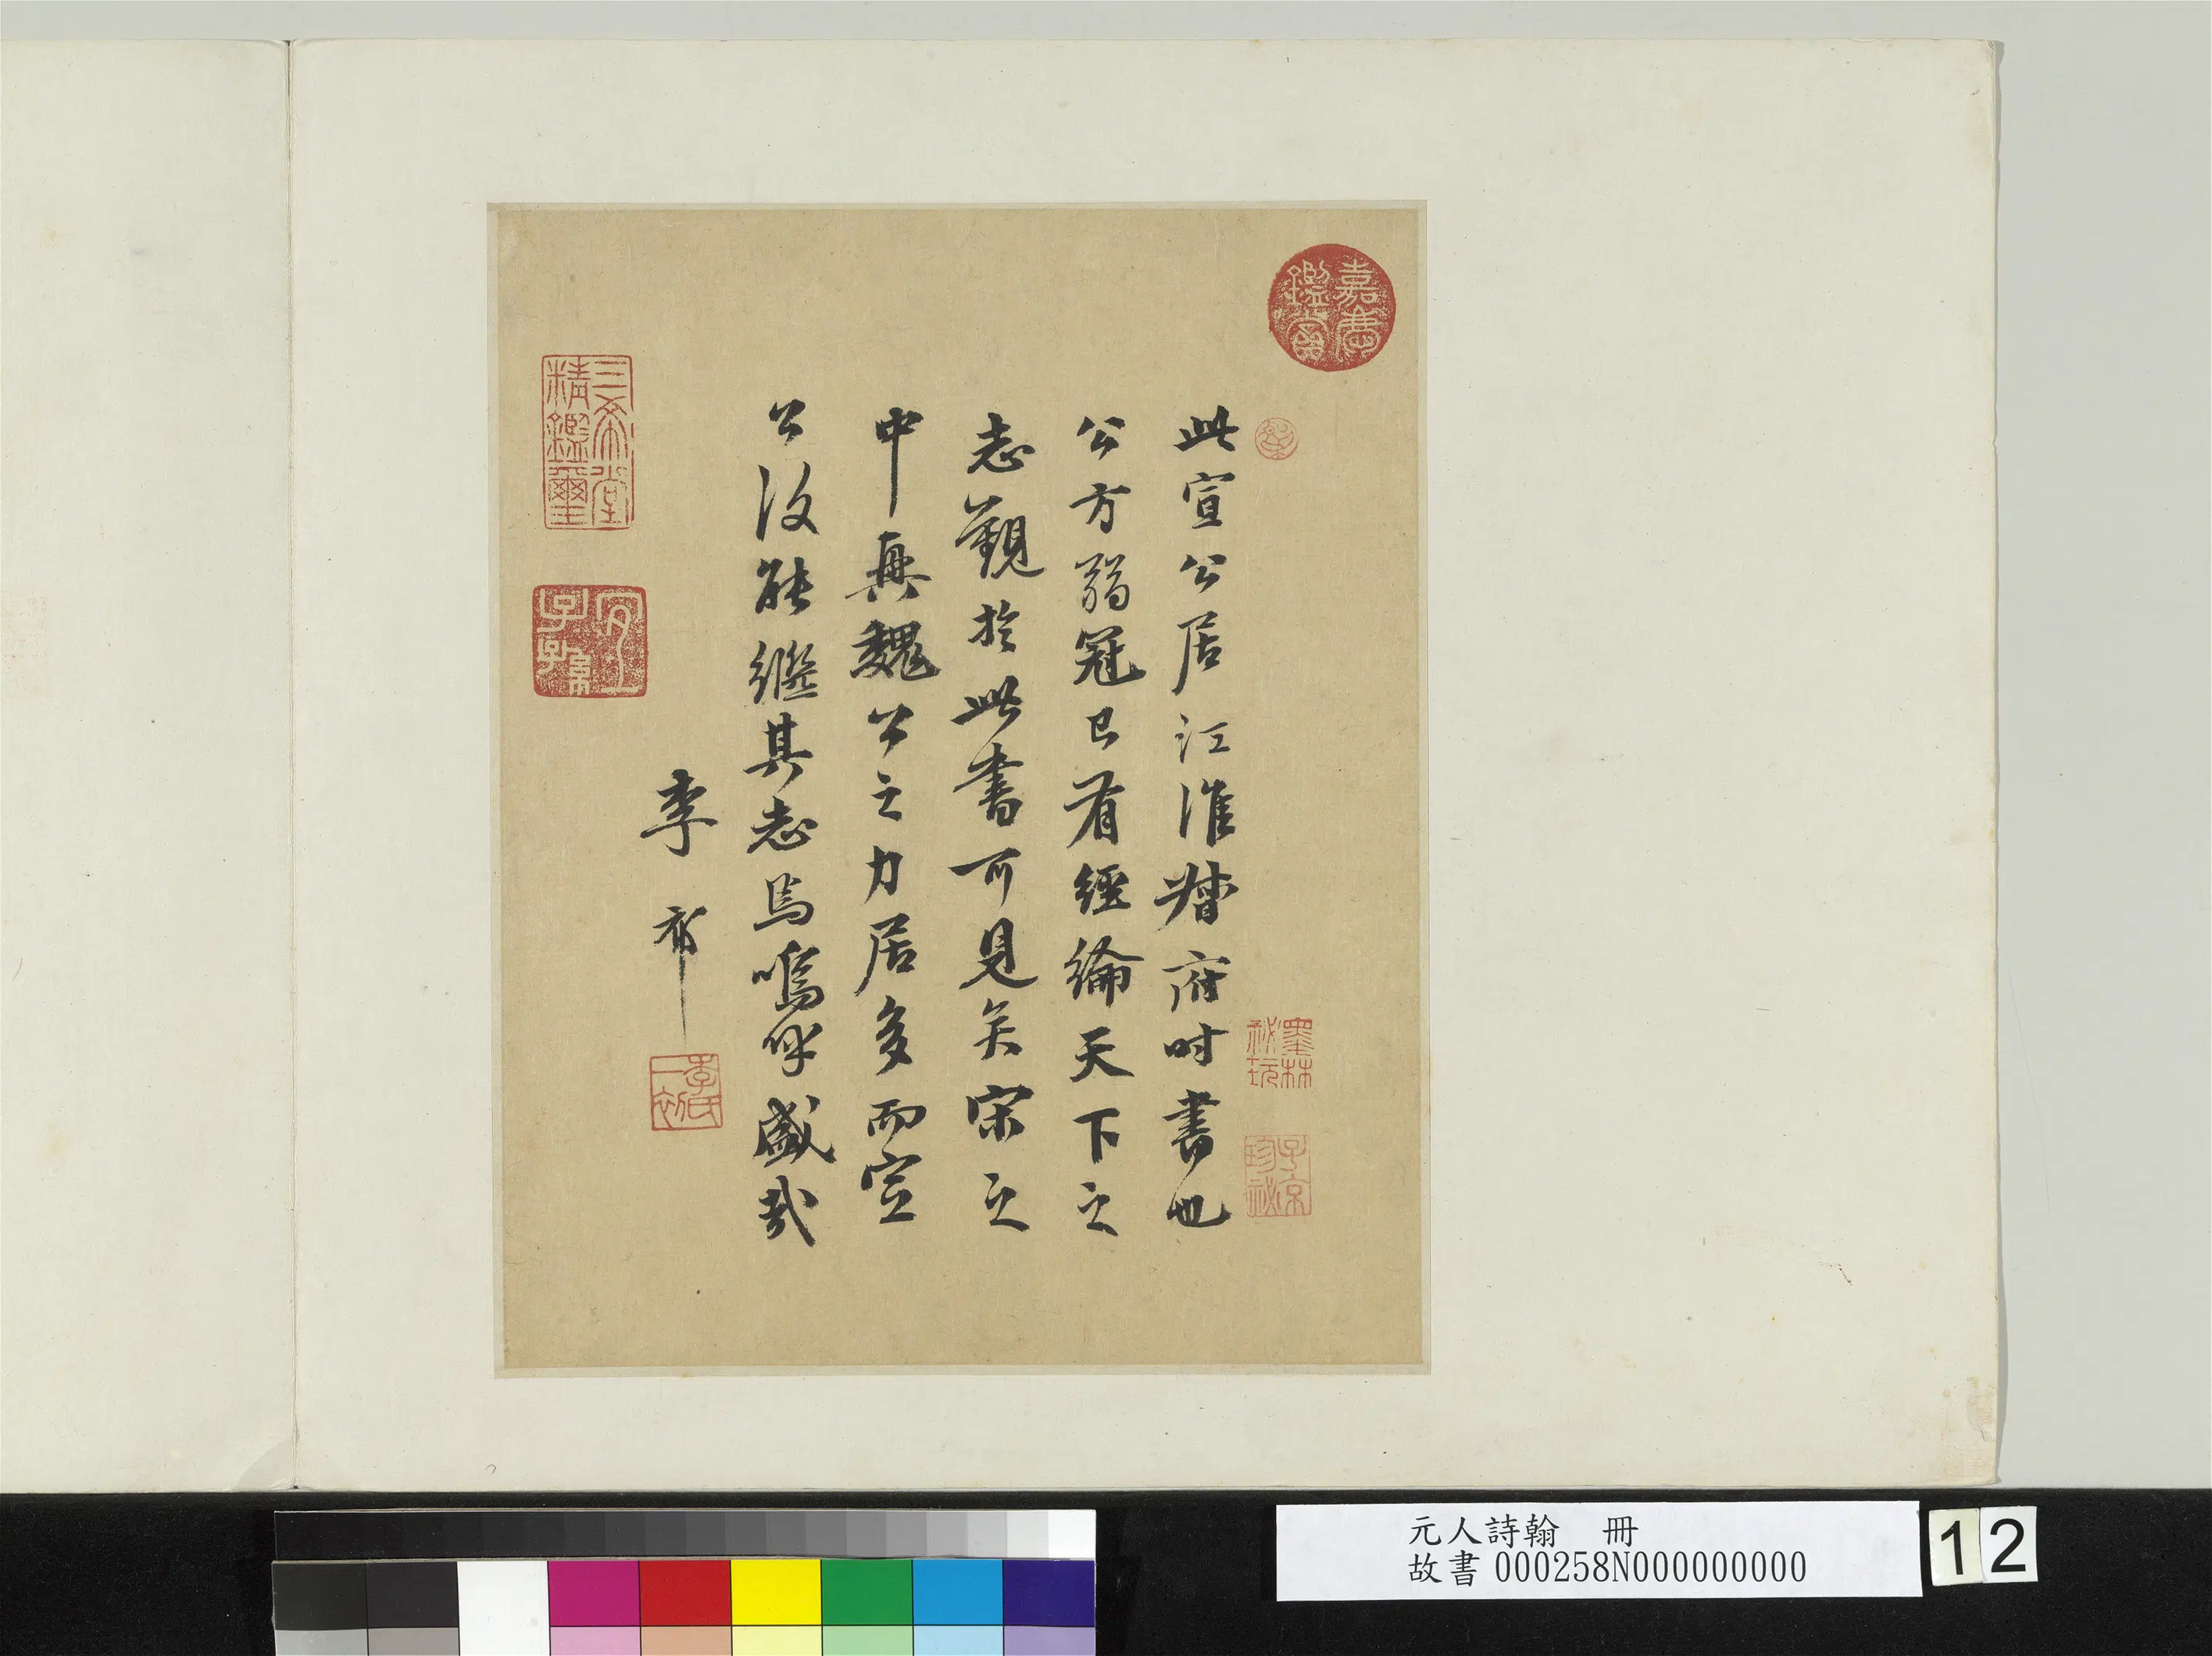 嘉慶鑑賞
此宣公居江淮督府时書也
公方弱冠已有經綸天下之
志觀於此書可見矣宋之
中興魏公之力居多而宣
公復能繼其志焉嗚呼盛哉
李祁
李氏一初
墨林秘玩
子京珍秘
三希堂精鑑璽
宜子孫
元人詩翰 冊
故書000258N000000000
12